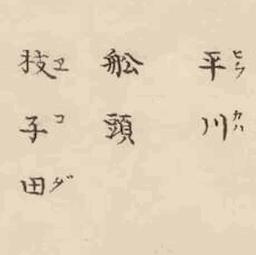 平川
ヒラカハ
舩頭
枝子田
ヱコダ